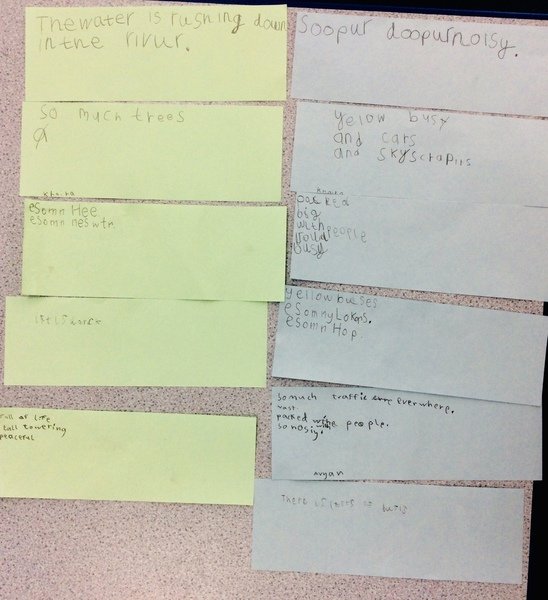 Thewater is rushing down
inthe rivur.
so much trees
esomn Hee
esomn
full of life
tall towering
peaceful
Soopur doopurnoisy.
yelow busy
and cars
and skyscrapiis
packed
big
withpeople
loud
busy
yellow busses
esomnyLokens.
esomn Hop.
so much traffic evrewhere.
vast.
packed people.
so nosiy.
Avyan
There is